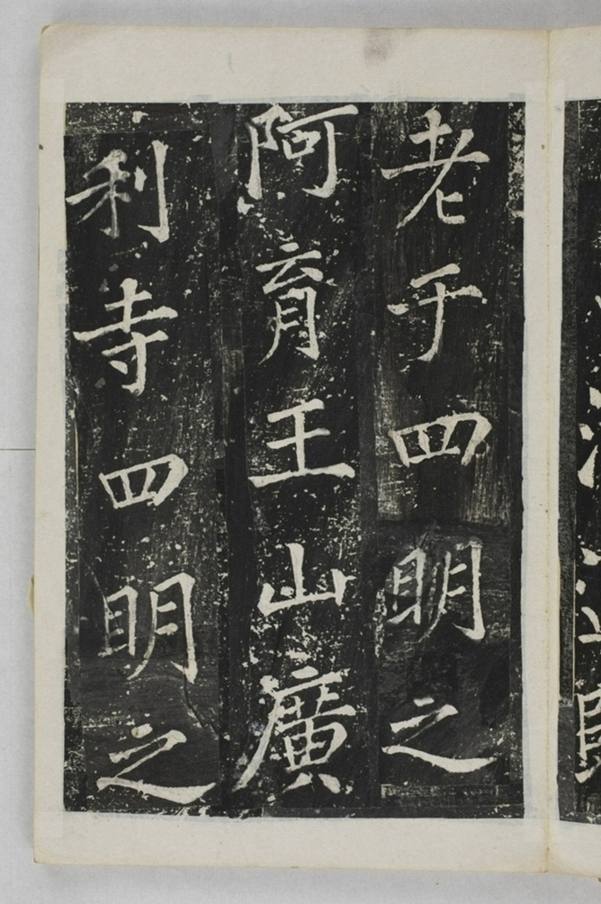 老于四明之
阿育王山廣
利寺四明之